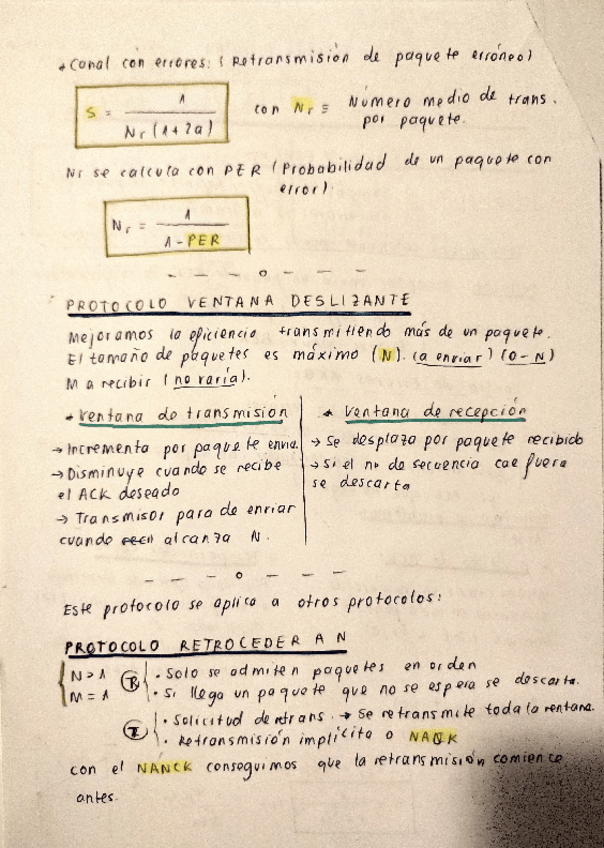 * Canal con errores: (Retransmisión de paquete erróneo)
S = 1 / Nr (1+2a) con Nr ≡ Número medio de trans.
por paquete.
Nr se calcula con PER (Probabilidad de un paquete con
error).
Nr = 1 / 1 - PER
PROTOCOLO VENTANA DESLIZANTE
Mejoramos la eficiencia transmitiendo más de un paquete.
El tamaño de paquetes es máximo (N). (a enviar) (0-N)
M a recibir (no varía).
* Ventana de transmisión
→ Incrementa por paquete envia.
→ Disminuye cuando se recibe
el ACK deseado
→ Transmisor para de enviar
cuando alcanza N.
* Ventana de recepción
→ Se desplaza por paquete recibido
→ Si el nº de secuencia cae fuera
se descarta
Este protocolo se aplica a otros protocolos:
PROTOCOLO RETROCEDER A N
N > 1
M = 1
R · Solo se admiten paquetes en orden
· Si llega un paquete que no se espera se descarta.
T · Solicitud de retrans. → Se retransmite toda la ventana.
· Retransmisión implícita o NACK
con el NANCK conseguimos que la retransmisión comience
antes.